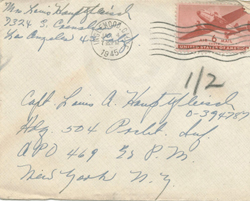 Mrs Louis Hauptfleisch
D324 S. 
Los Angeles 4 Calif
1945
UNITED STATES OF AMERICA
1/2
Capt Louis A. Hauptfleisch
O-394787
Hdq 504 Prcht. Inf.
APO 469 % P.M.
New York N.Y.